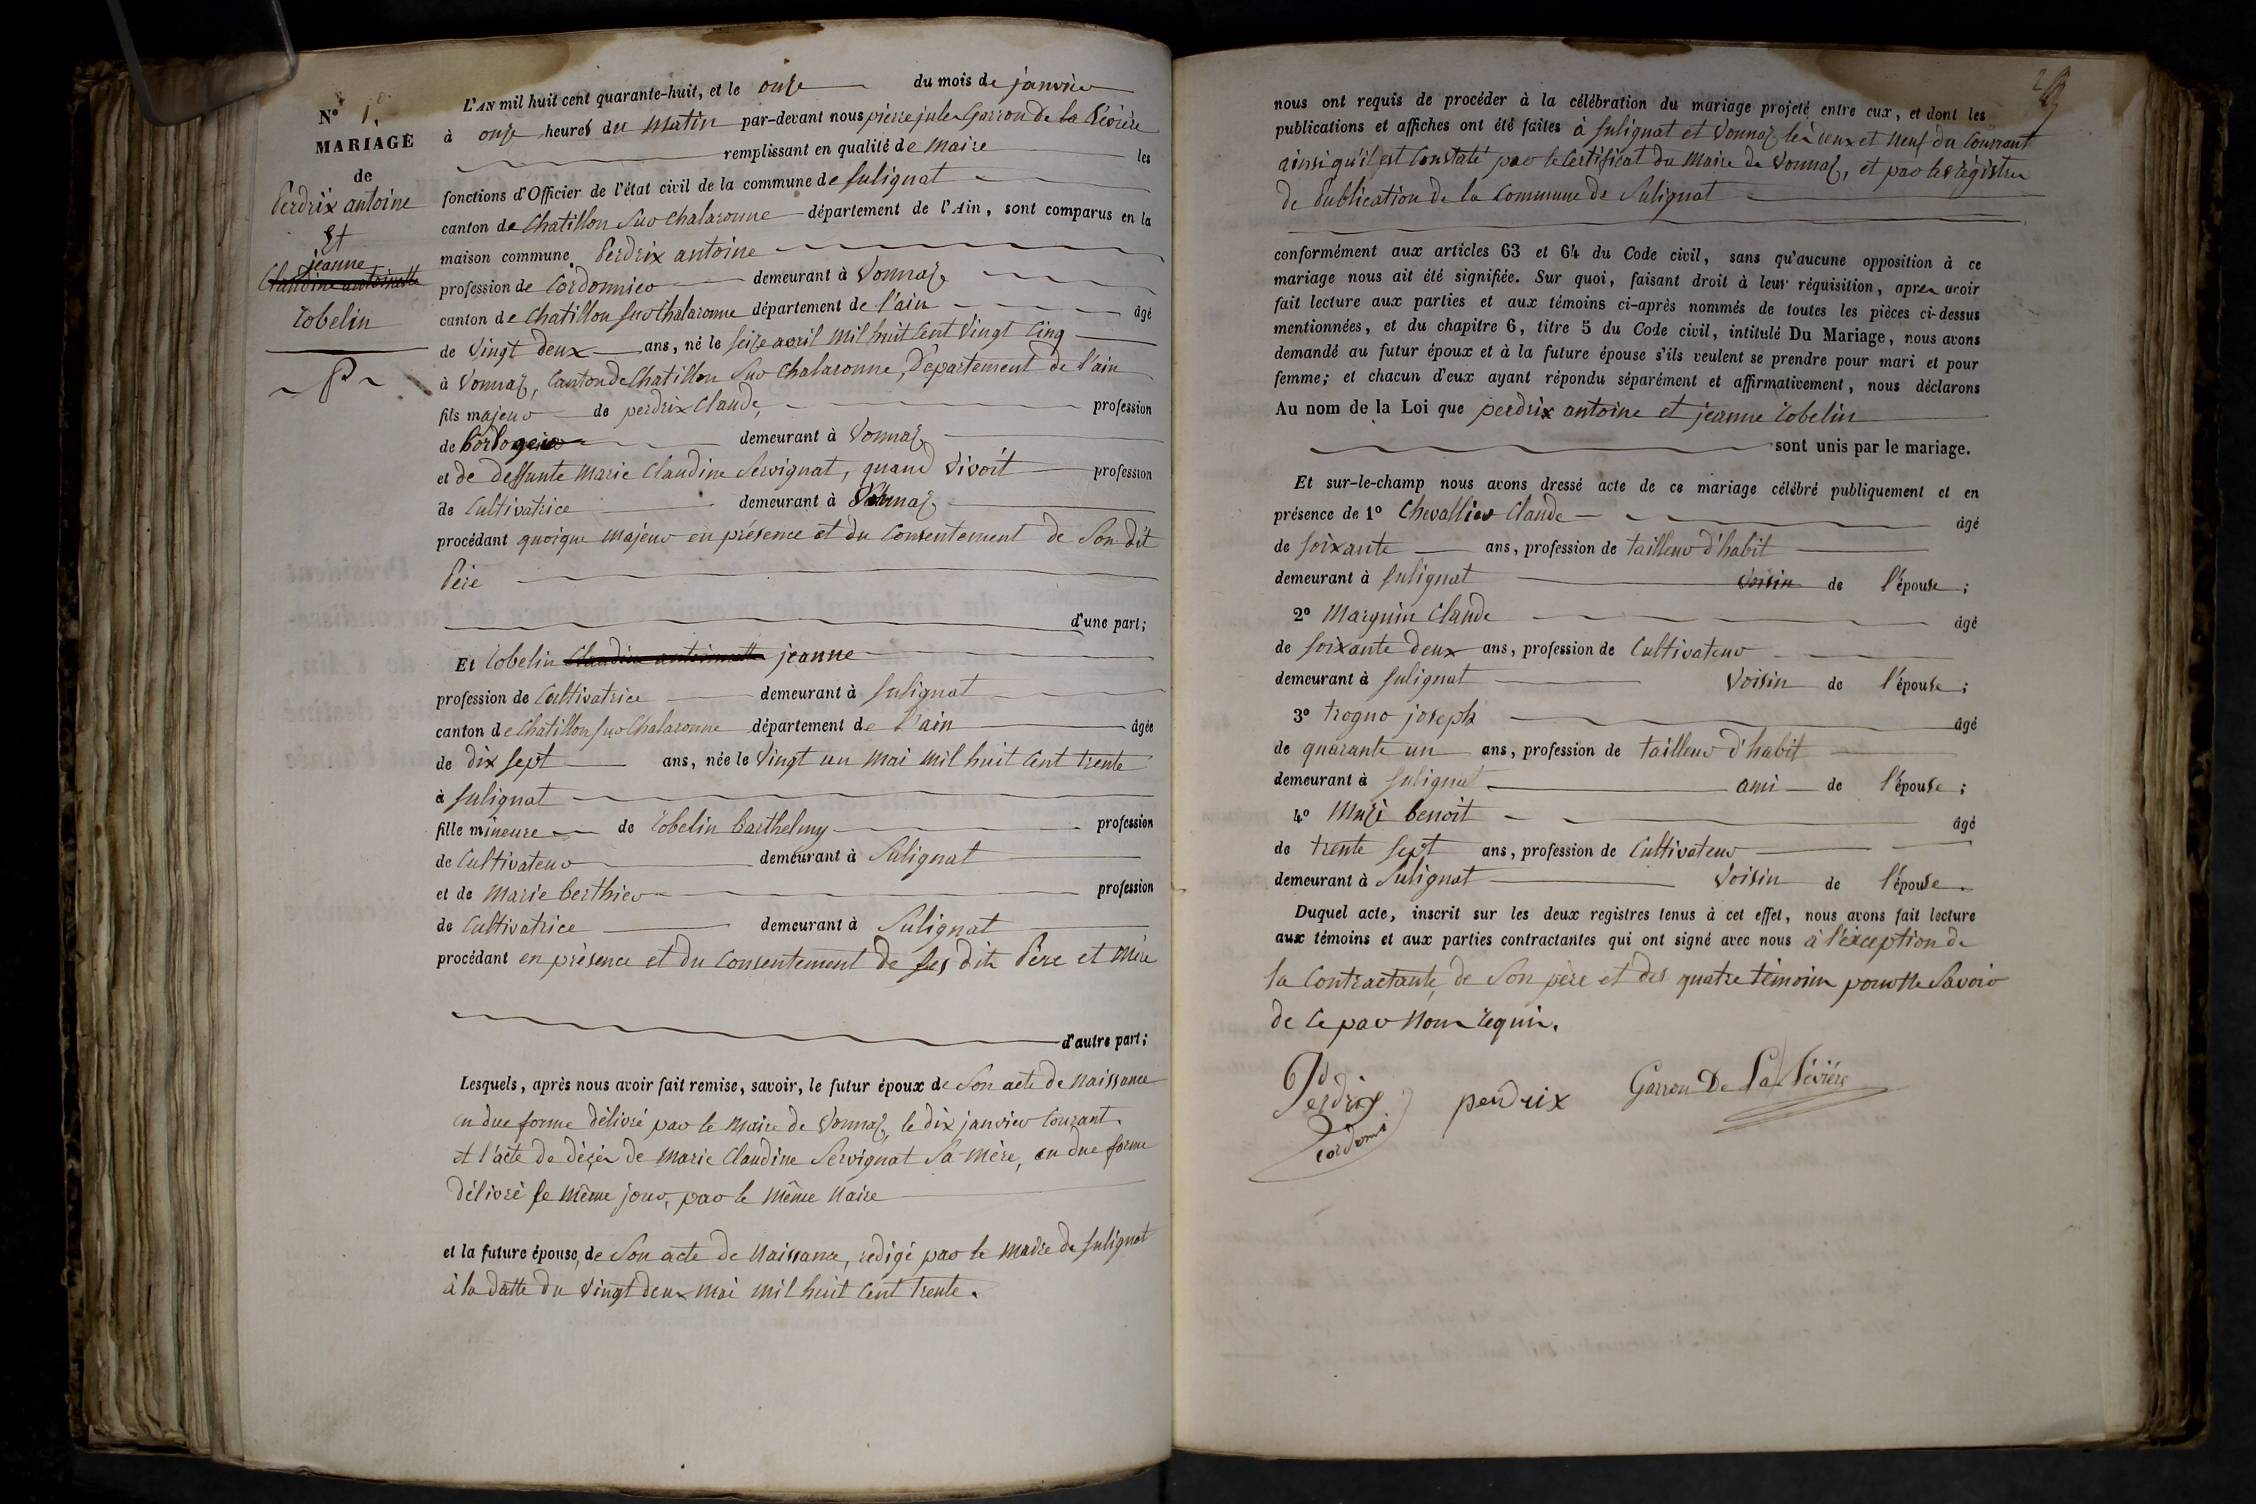 N° 1.
MARIAGE
de
Perdrix antoine
Et
jeanne
Claudine antoinette
Robelin
L'AN mil huit cent quarante-huit, et le onze du mois de janvier
à onze heures du Matin par-devant nous pierre jules Garron de la Bévière
remplissant en qualité de Maire les
fonctions d'Officier de l'état civil de la commune de Sulignat
canton de Chatillon sur Chalaronne département de l'Ain, sont comparus en la
maison commune, Perdrix antoine
profession de Cordonnier demeurant à Vonnaz
canton de Chatillon sur Chalaronne département de l'ain âgé
de Vingt deux ans, né le seize avril mil huit Cent Vingt Cinq
à Vonnaz, Canton de Chatillon sur Chalaronne, Département de l'ain
fils majeur de perdrix Claude, profession
de horloger demeurant à Vonnaz
et de deffunte Marie Claudine Servignat, quand Vivoit profession
de Cultivatrice demeurant à Vonnaz
procédant quoique Majeur en présence et du Consentement de Son dit
Père
d'une part;
Et Robelin Claudine antoinette jeanne
profession de Cultivatrice demeurant à Sulignat
canton de Chatillon sur Chalaronne département de l'ain âgée
de dix sept ans, née le Vingt un Mai Mil huit Cent trente
à Sulignat
fille mineure de Robelin Barthelmy profession
de Cultivateur demeurant à Sulignat
et de Marie Berthier profession
de Cultivatrice demeurant à Sulignat
procédant en présence et du Consentement de ses dits Père et Mère
d'autre part;
Lesquels, après nous avoir fait remise, savoir, le futur époux de Son acte de Naissance
en due forme délivré par le Maire de Vonnaz, le dix janvier Courant.
et l'acte de décès de Marie Claudine Servignat Sa Mère, en due forme
délivré le Même jour, par le Même Maire
et la future épouse, de Son acte de Naissance, redigé par le Maire de Sulignat
à la datte du Vingt deux Mai Mil huit Cent trente.
nous ont requis de procéder à la célébration du mariage projeté entre eux, et dont les
publications et affiches ont été faites à Sulignat et Vonnaz les deux et Neuf du Courant
ainsi qu'il est Constaté par le Certificat du Maire de Vonnaz, et par les régistres
de Publication de la Commune de Sulignat
conformément aux articles 63 et 64 du Code civil, sans qu'aucune opposition à ce
mariage nous ait été signifiée. Sur quoi, faisant droit à leur réquisition, après avoir
fait lecture aux parties et aux témoins ci-après nommés de toutes les pièces ci-dessus
mentionnées, et du chapitre 6, titre 5 du Code civil, intitulé Du Mariage, nous avons
demandé au futur époux et à la future épouse s'ils veulent se prendre pour mari et pour
femme; et chacun d'eux ayant répondu séparément et affirmativement, nous déclarons
Au nom de la Loi que perdrix antoine et jeanne Robelin
sont unis par le mariage.
Et sur-le-champ nous avons dressé acte de ce mariage célébré publiquement et en
présence de 1° Chevallier Claude âgé
de Soixante ans, profession de tailleur d'habit
demeurant à Sulignat Voisin de l'épouse;
2° Marguin Claude âgé
de Soixante deux ans, profession de Cultivateur
demeurant à Sulignat Voisin de l'épouse;
3° trogno joseph âgé
de quarante un ans, profession de tailleur d'habit
demeurant à Sulignat ami de l'épouse;
4° Muzi benoit âgé
de trente sept ans, profession de Cultivateur
demeurant à Sulignat Voisin de l'épouse.
Duquel acte, inscrit sur les deux registres tenus à cet effet, nous avons fait lecture
aux témoins et aux parties contractantes qui ont signé avec nous à l'éxception de
la Contractante, de Son père et des quatre témoins pour ne Savoir
de Ce par Nous requis.
Perdrix perdrix Garron De La Bévière